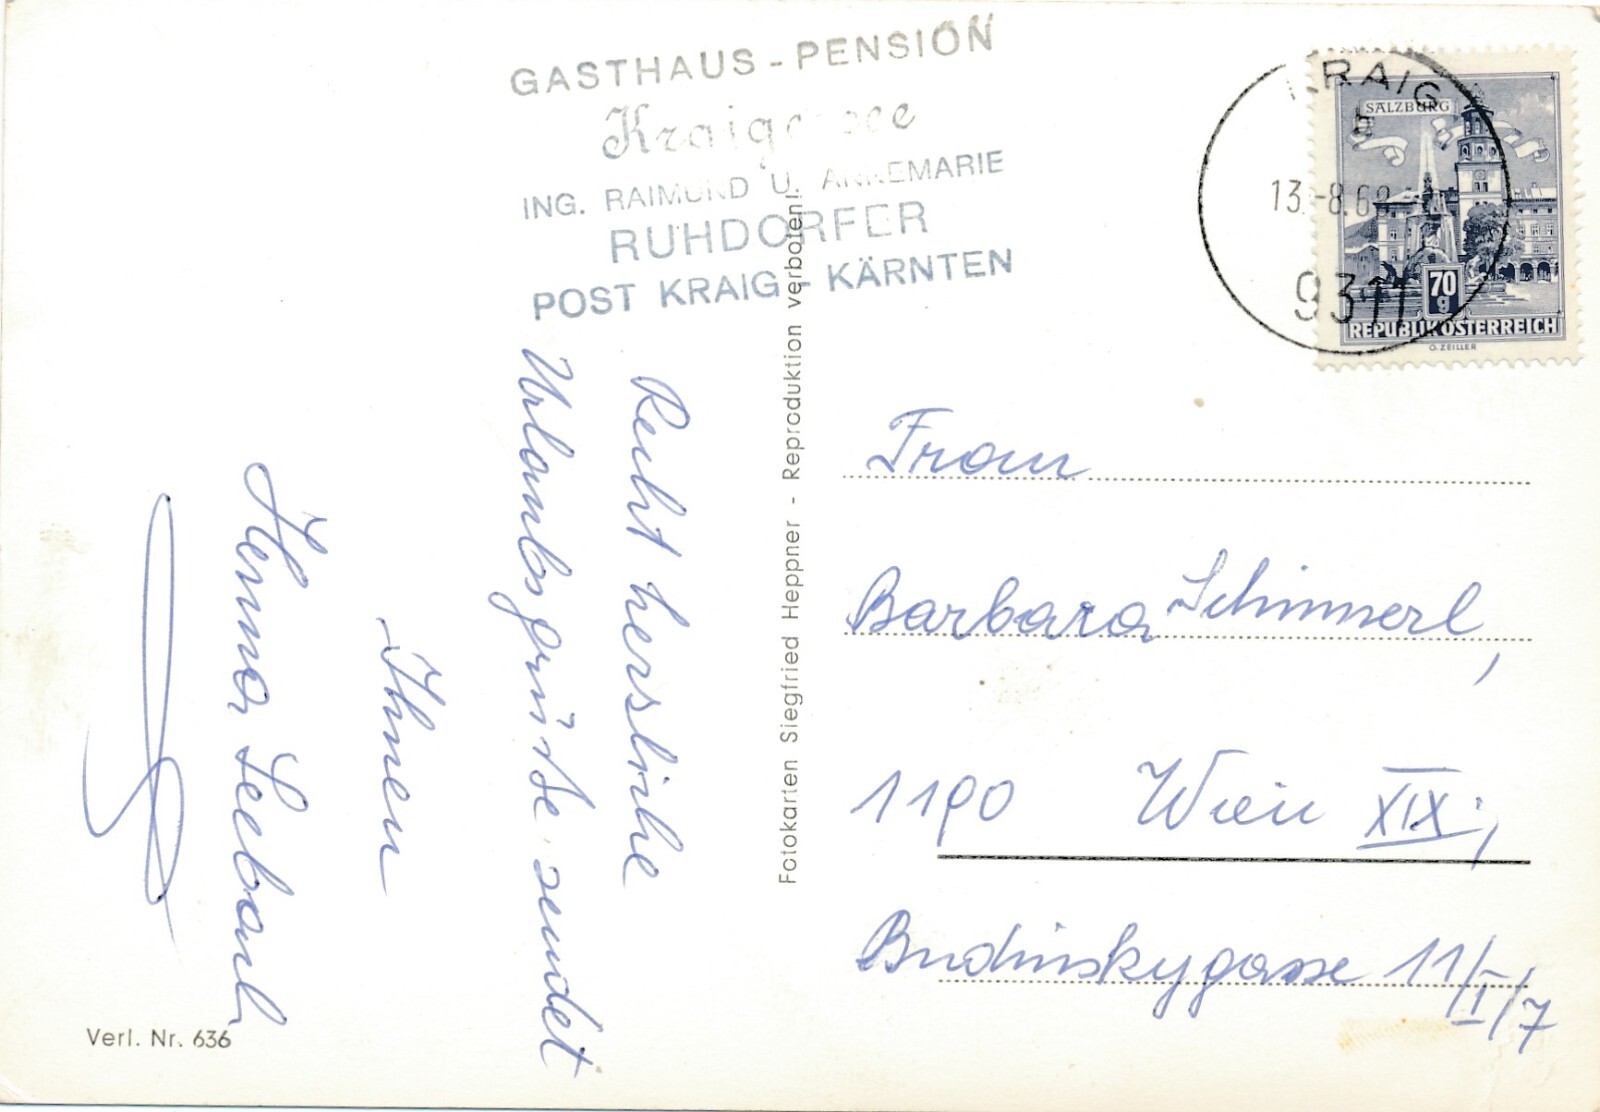 GASTHAUS - PENSION
Kraigersee
ING. RAIMUND U. ANNEMARIE
RUHDORFER
POST KRAIG - KÄRNTEN
Recht herzliche
Urlaubsgrüße sendet
Ihnen
Henna Seebach
Verl. Nr. 636
Fotokarten Siegfried Heppner - Reproduktion verboten!
KRAIG
13.-8.69
9311
SALZBURG
70
g
REPUBLIK ÖSTERREICH
O. ZEILLER
Frau
Barbara Schimmerl,
1190 Wien XIX;
Budinskygasse 11/I/7